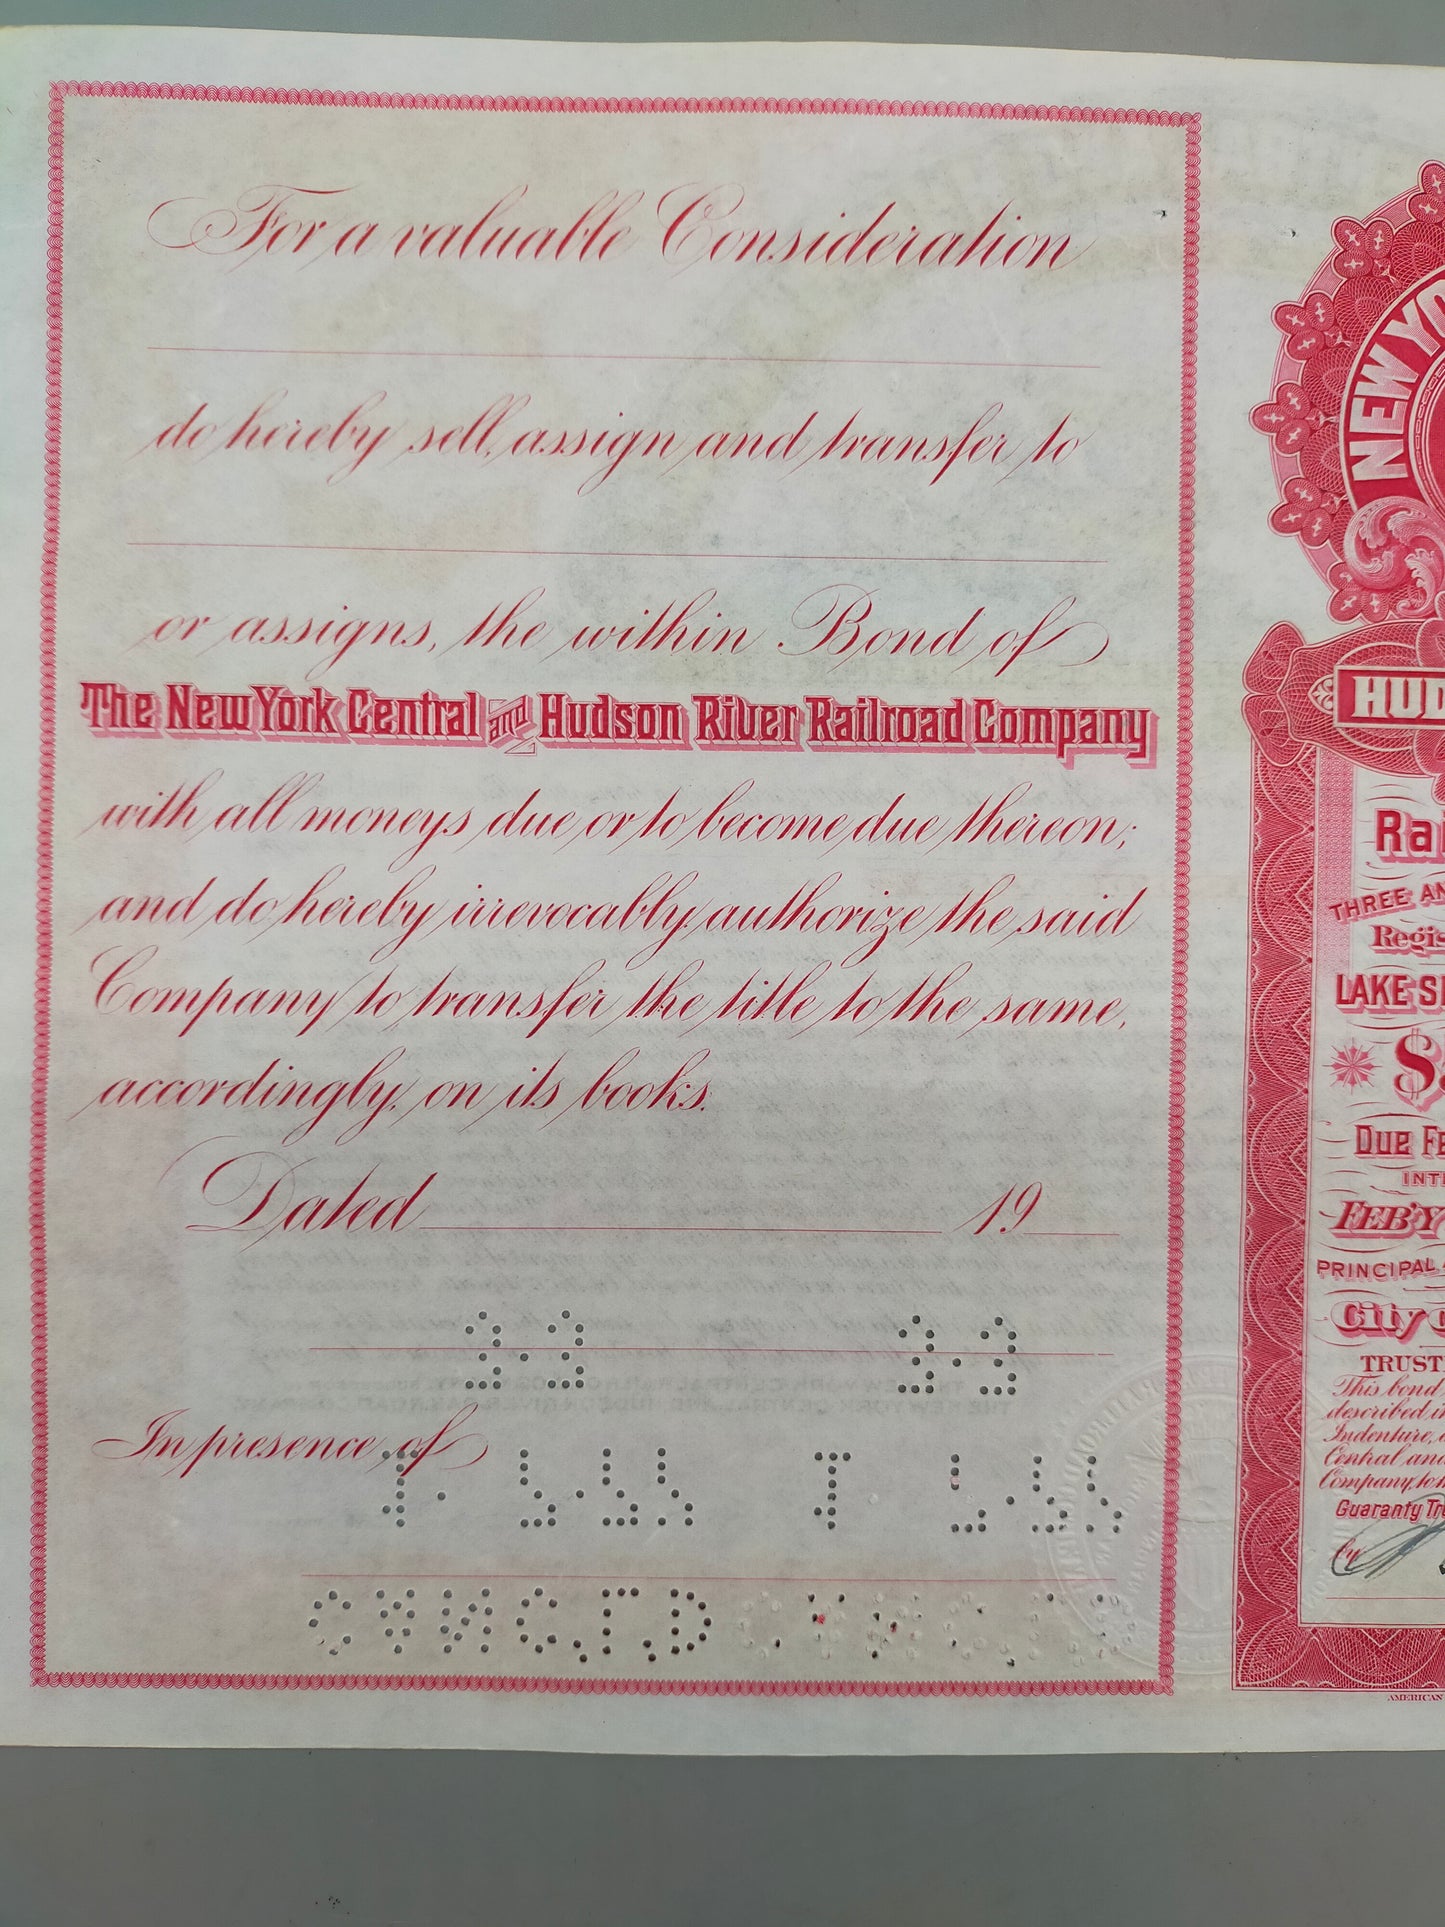 For a valuable Consideration
do hereby sell, assign and transfer to
or assigns, the within Bond of
The New York Central and Hudson River Railroad Company
with all moneys due or to become due thereon;
and do hereby irrevocably authorize the said
Company to transfer the title to the same,
accordingly, on its books.
Dated 19
In presence of
NEW YO
HUD
THREE AN
LAKE S
$
DUE FE
INT
FEB'Y
PRINCIPAL
City
TRUST
This bond
described in
Indenture,
Central and
Company, to
Guaranty Tr
by
AMERICAN